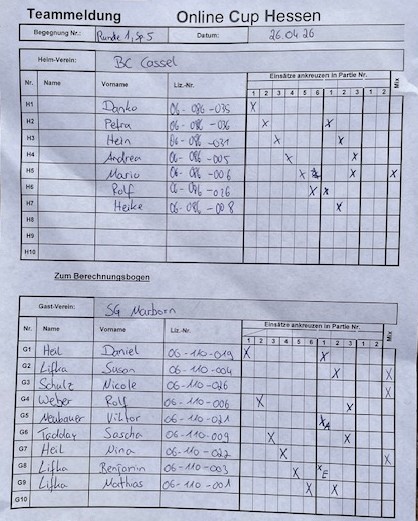 Teammeldung Online Cup Hessen
Begegnung Nr.: Runde 1, Sp 5 Datum: 26.04.26
Heim-Verein: BC Cassel
Einsätze ankreuzen in Partie Nr. Mix
Nr. Name Vorname Liz.-Nr. 1 2 3 4 5 6 1 2 3 1 2
H1 Danko 06-086-035 x
H2 Petra 06-086-036 x x
H3 Hein 06-086-031 x x
H4 Andrea 06-086-005 x x
H5 Mario 06-086-006 x x x
H6 Rolf 06-086-026 x x
H7 Heike 06-086-008 x
H8
H9
H10
Zum Berechnungsbogen
Gast-Verein: SG Marborn
Einsätze ankreuzen in Partie Nr. Mix
Nr. Name Vorname Liz.-Nr. 1 2 3 4 5 6 1 2 3 1 2
G1 Heil Daniel 06-110-019 x x
G2 Lifka Susan 06-110-004 x x
G3 Schulz Nicole 06-110-026 x
G4 Weber Rolf 06-110-006 x x
G5 Neubauer Viktor 06-110-021 x A
G6 Tadday Sascha 06-110-009 x x
G7 Heil Nina 06-110-022 x x
G8 Lifka Benjamin 06-110-003 x x E
G9 Lifka Mathias 06-110-001 x x
G10